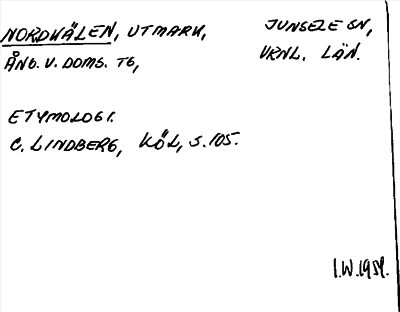 NORDWÄLEN, UTMARK, JUNSELE SN,
ÅNG. V. DOMS. TG, VRNL. LÄN.
ETYMOLOGI.
C. LINDBERG, KÖL, S. 105.
I.W. 1959.